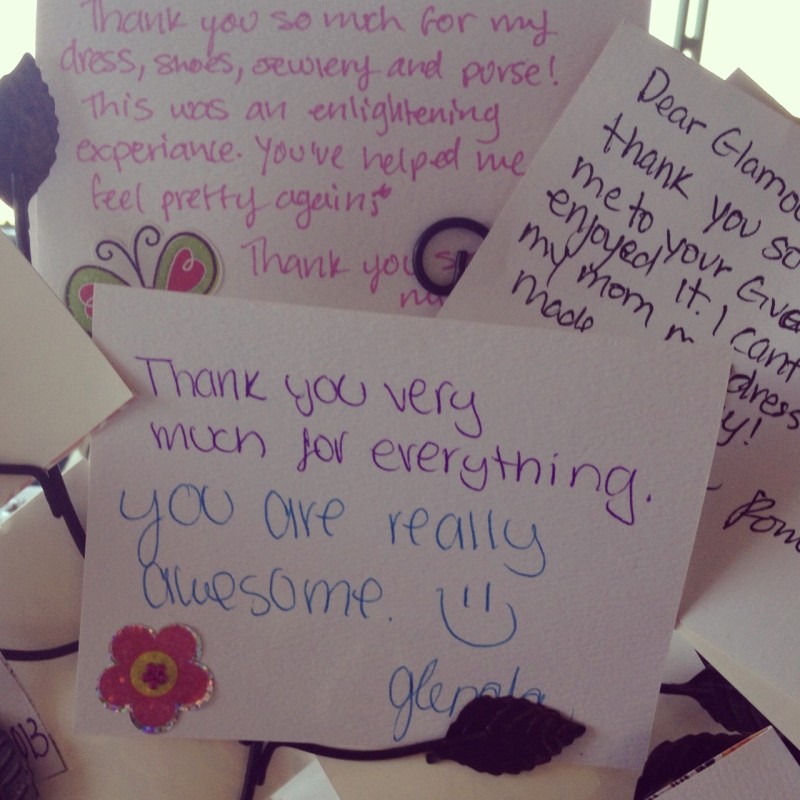 Thank you so much for my
dress, shoes, jewlery and purse!
This was an enlightening
experiance. You've helped me
feel pretty again;
Thank you
Dear
thank you so
me to your
enjoyed it. I cant
my mom
made
dress
Thank you very
much for everything.
you are really
awesome.